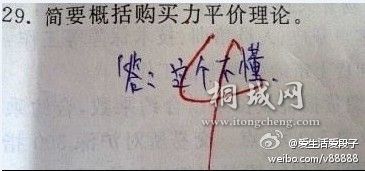 29. 简要概括购买力平价理论。
答：这个不懂.
桐城网
www.itongcheng.com
@爱生活爱段子
weibo.com/v88888